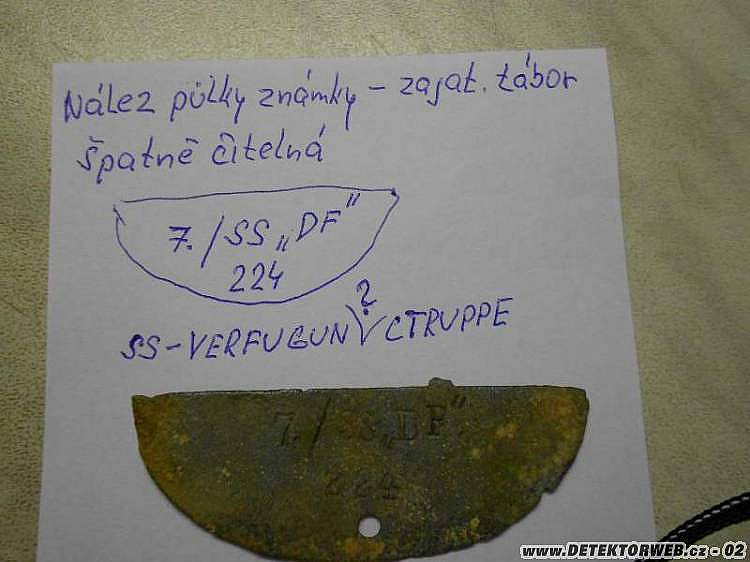 Nález půlky známky - zajat. tábor
Špatně čitelná
7. /SS „DF"
224
?
SS-VERFUGUN CTRUPPE
7. /SS „DF"
224
www.DETEKTORWEB.cz - 02